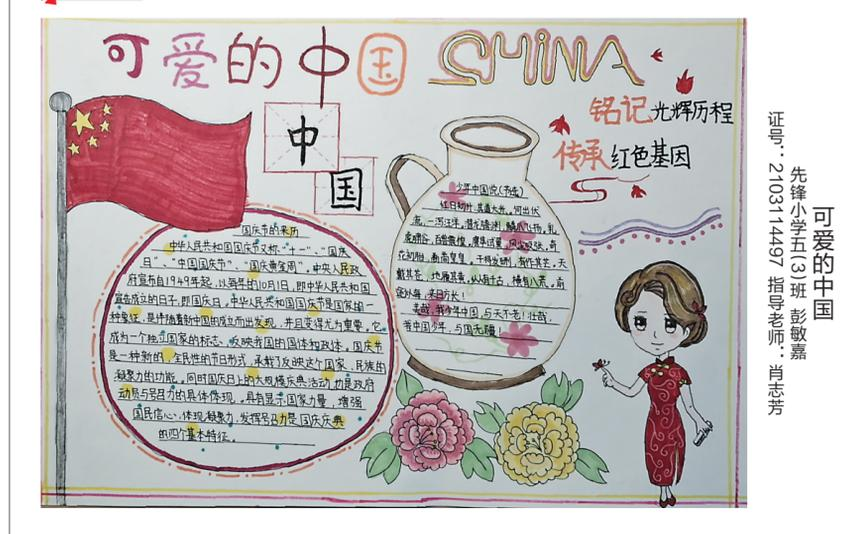 可爱的中国 CHINA
铭记光辉历程
传承红色基因
中
国
国庆节的来历
中华人民共和国国庆节又称“十一”、“国庆
日”、“中国国庆节”、“国庆黄金周”。中央人民政
府宣布自1949年起,以每年的10月1日,即中华人民共和国
宣告成立的日子,即国庆日。中华人民共和国国庆节是国家的一
种象征,是伴随着新中国的成立而出现,并且变得尤为重要。它
成为一个独立国家的标志,反映我国的国体和政体。国庆节
是一种新的、全民性的节日形式,承载了反映这个国家、民族的
凝聚力的功能。同时国庆日上的大规模庆典活动,也是政府
动员与号召力的具体体现。具有显示国家力量、增强
国民信心,体现凝聚力,发挥号召力是国庆庆典
的四个基本特征。
少年中国说(节选)
红日初升,其道大光。河出伏
流,一泻汪洋。潜龙腾渊,鳞爪飞扬。乳
虎啸谷,百兽震惶。鹰隼试翼,风尘吸张。奇
花初胎,矞矞皇皇。干将发硎,有作其芒。天
戴其苍,地履其黄。纵有千古,横有八荒。前
途似海,来日方长!
美哉,我少年中国,与天不老!壮哉,
我中国少年,与国无疆!
可爱的中国
先锋小学五(3)班 彭敏嘉
证号:2103114497 指导老师:肖志芳